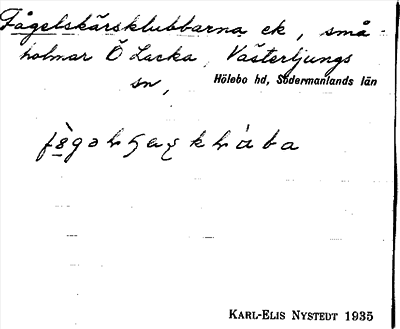 Fågelskärsklubbarna ek, små-
holmar Ö Lacka, Västerljungs
sn,
Hölebo hd, Södermanlands län
KARL-ELIS NYSTEDT 1935